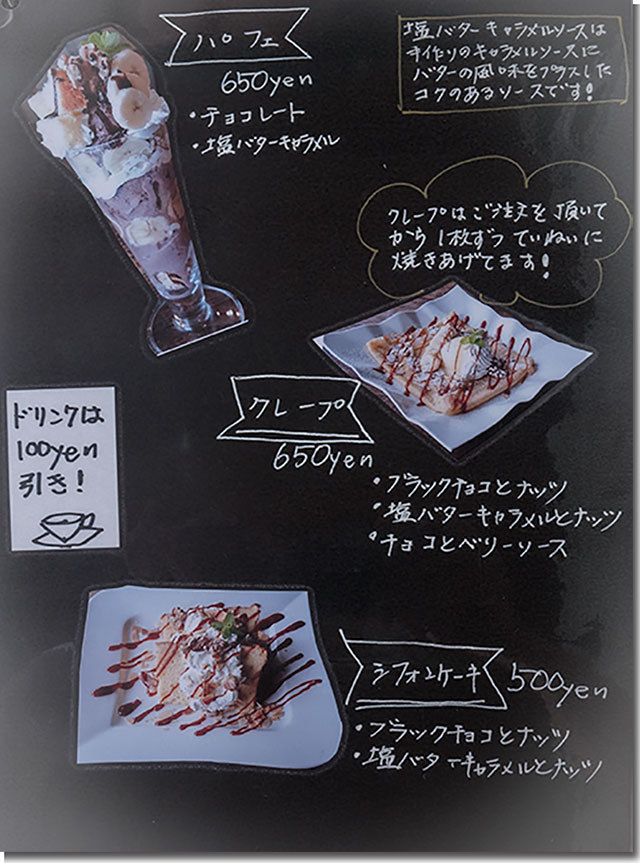 パフェ
650yen
・チョコレート
・塩バターキャラメル
塩バターキャラメルソースは
手作りのキャラメルソースに
バターの風味をプラスした
コクのあるソースです!
クレープはご注文を頂いて
から1枚ずつていねいに
焼きあげてます!
クレープ
650yen
・ブラックチョコとナッツ
・塩バターキャラメルとナッツ
・チョコとベリーソース
ドリンクは
100yen
引き!
シフォンケーキ 500yen
・ブラックチョコとナッツ
・塩バターキャラメルとナッツ